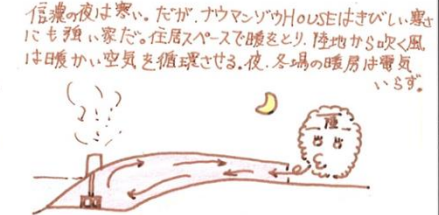 信濃の夜は寒い。だが、ナウマンゾウHOUSEはきびしい寒さ
にも強い家だ。住居スペースで暖をとり、陸地から吹く風
は暖かい空気を循環させる。夜、冬場の暖房は電気
いらず。
陸